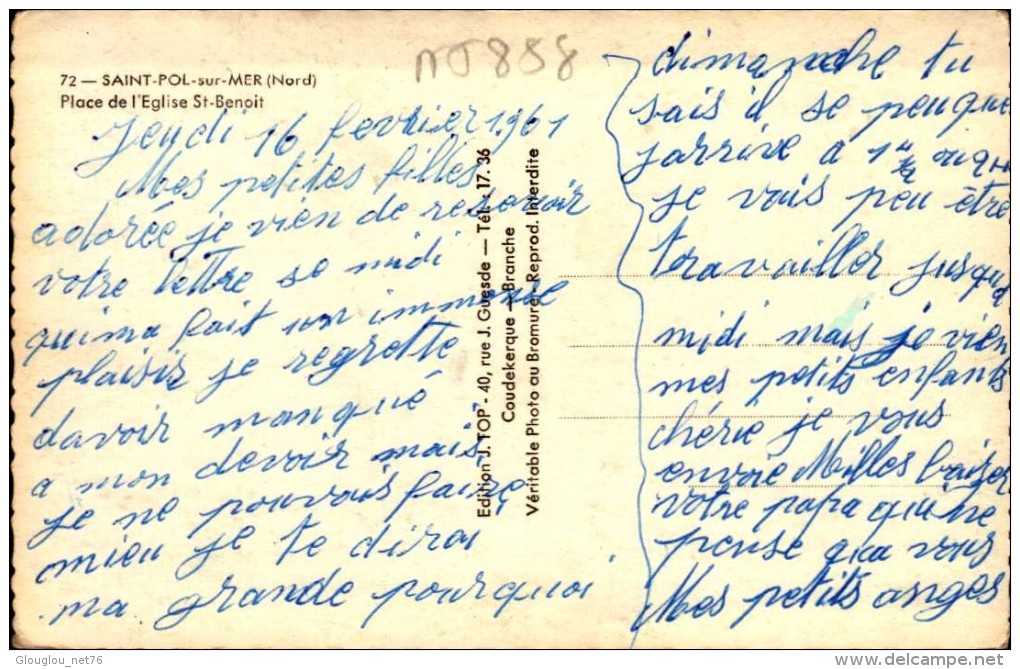 NJ 888
72 — SAINT-POL-sur-MER (Nord)
Place de l'Eglise St-Benoit
Jeudi 16 fevrier 1961
Mes petites filles
adorée je vien de resevoir
votre lettre se midi
qui ma fait un immense
plaisir je regrette
davoir manqué
a mon devoir mais
je ne pouvais faire
mieu je te dirai
ma grande pourquoi
Edition J. TOP - 40, rue J. Guesde — Tél. 17.36
Coudekerque — Branche
Véritable Photo au Bromure - Reprod. Interdite
dimanche tu
sais il se peu que
jarrive a 1
je vais peu être
travailler jusqua
midi mais je vien
mes petits enfants
chérie je vous
envoie Milles baiser
votre papa qui ne
pense qua vous
Mes petits anges
Glouglou_net76
delcampe.net